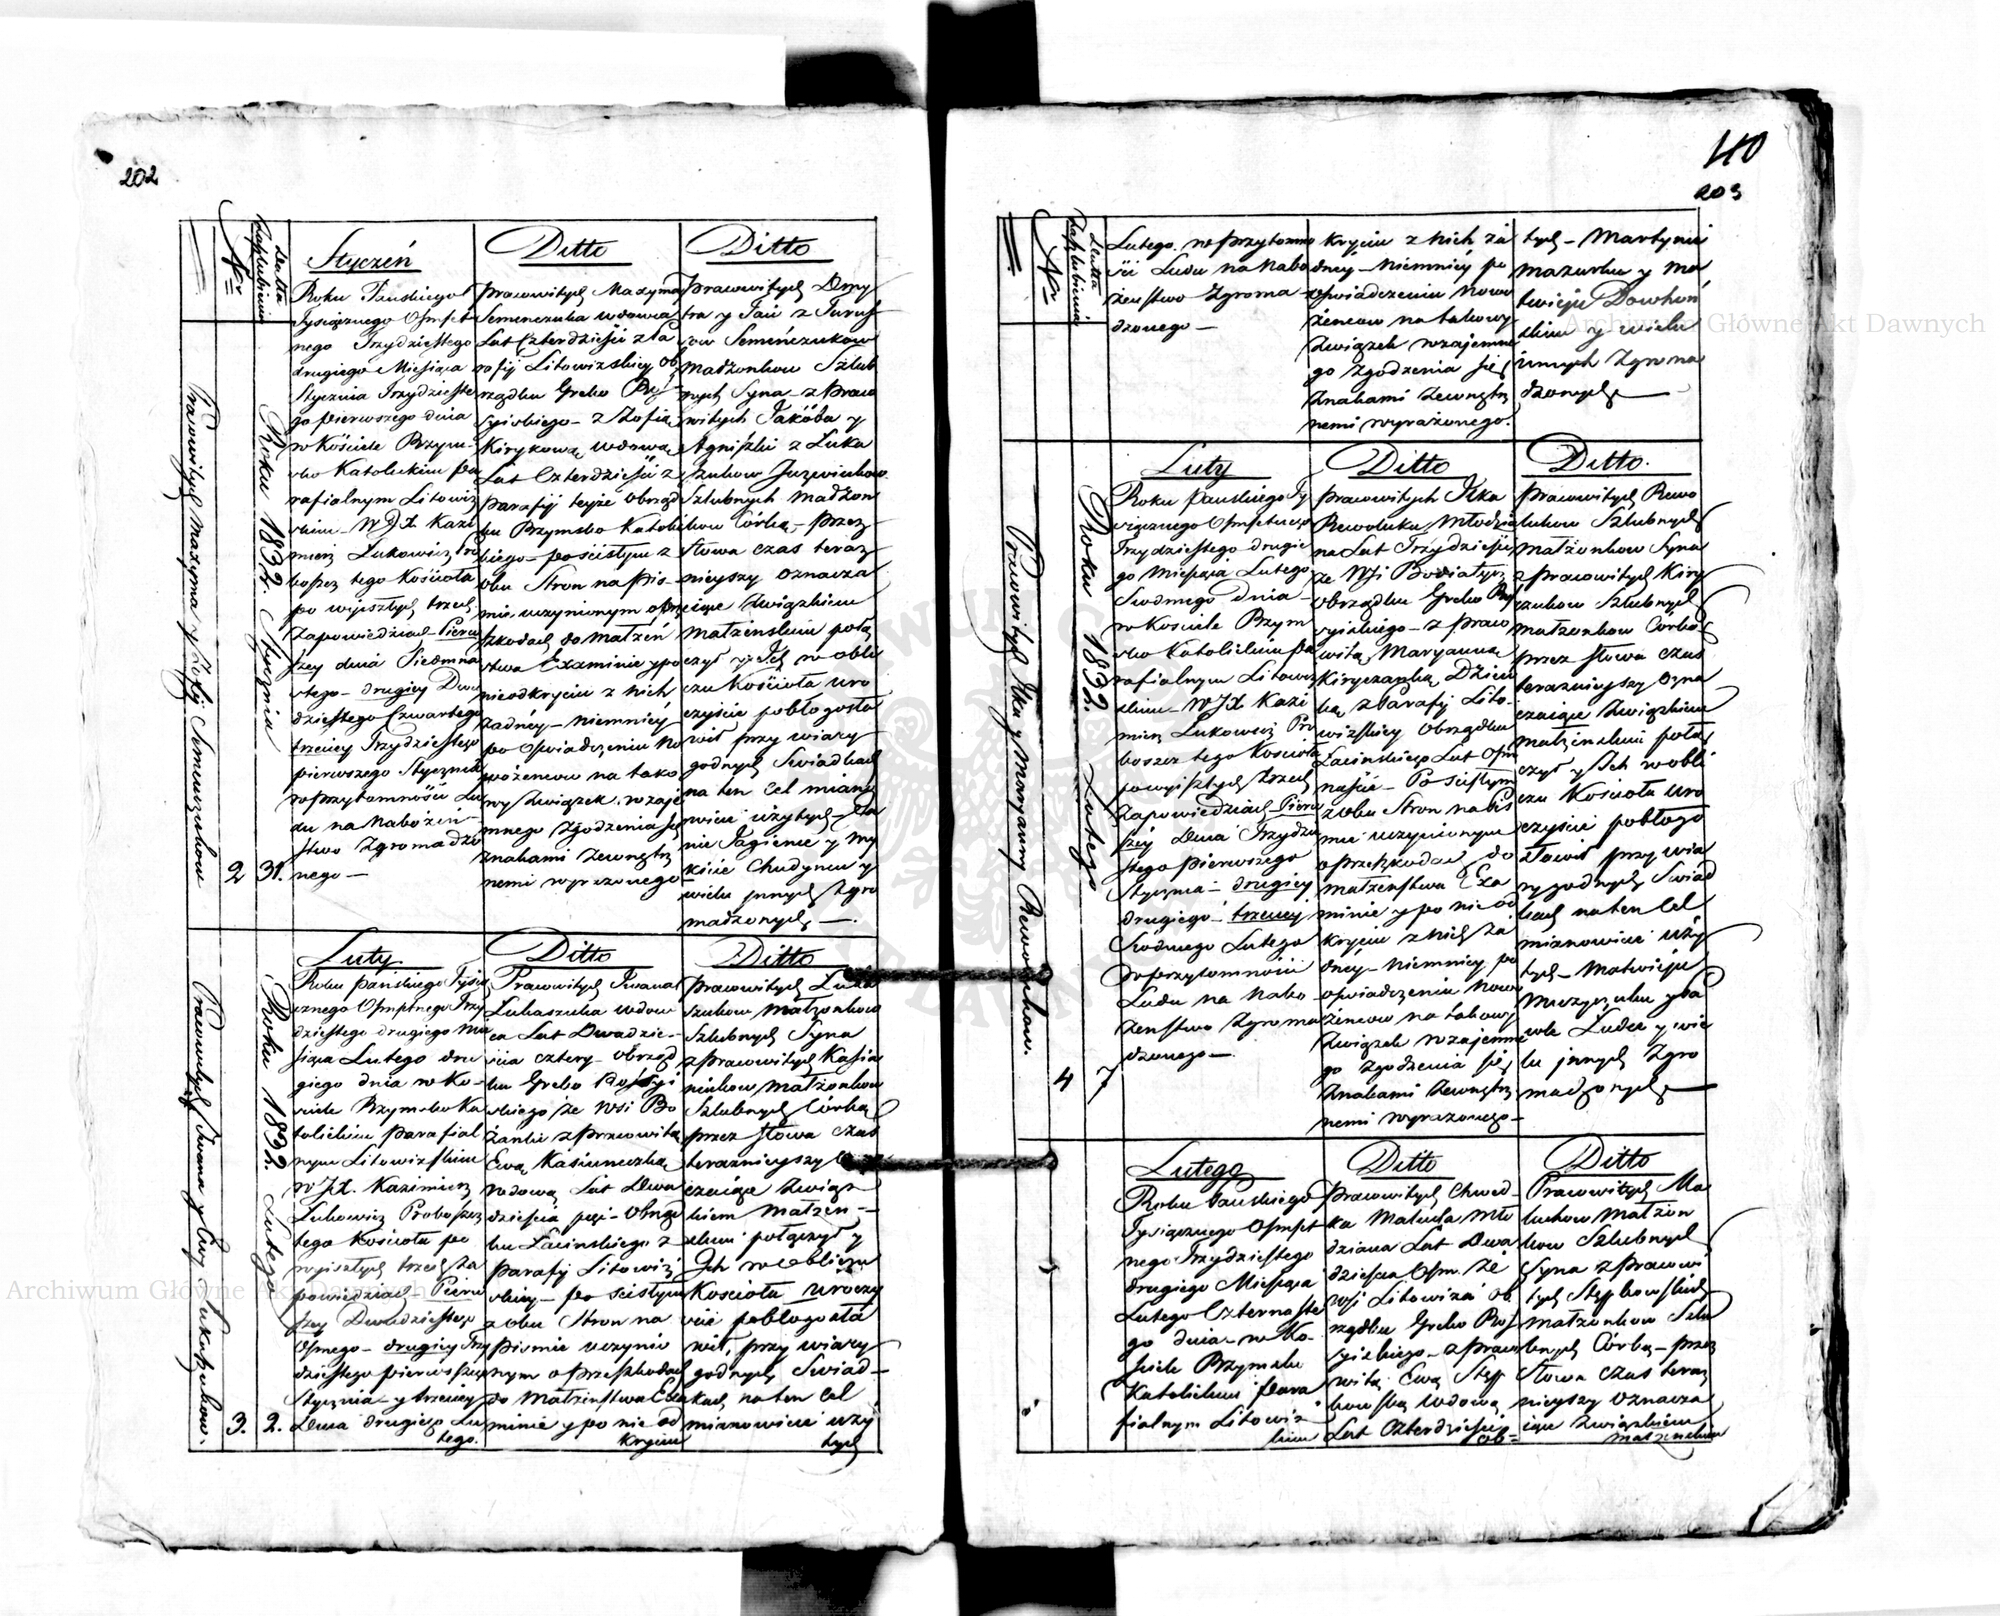 202
Nr
Datta Zaszlubienia
Styczeń
Roku Pańskiego
Tysiącznego Ośmset
nego Trzydziestego
drugiego Miesiąca
Stycznia Trzydzieste
go pierwszego dnia
w Kościele Rzym-
sko Katolickim Pa
rafialnym Litowiz
skim W JX. Kazi
mierz Lukowicz Pro
boszcz tego Kościoła
po wyjsztych trzech
Zapowiedziach Pierw
szey dnia Siedmna
stego drugiey Dwu
dziestego Czwartego
trzeciey Trzydziestego
pierwszego Stycznia
w przytomności Lu
du na Nabożeń-
stwo Zgromadzo
nego
Ditto
Pracowitych Maxyma
Semenczuka wdowca
Lat Czterdzieści z Pa
rafij Litowizskiey Ob
rządku Greko Ros
syiskiego z Zofią
Kirykową wdową
Lat Czterdzieści z
Parafij teyże obrząd
ku Rzymsko Katolic
kiego po ścisłym z
obu Stron na pis-
mie uczynionym o prze
szkodach do małżeń
stwa Examinie y po
nieodkryciu z nich
żadney niemniey
po oświadczeniu No
wożencow na tako
wy Związek wzaje
mnego Zgodzenia się
znakami Zewnętrz
nemi wyrażonego
Ditto
Pracowitych Dmy
tra y Jań z Turuf
ow Semeńczukow
Madżonkow Szlub
nych Syna z Praco
witych Jakóba y
Agniszki z Luka
szukow Juzwiukow
Szlubnych Madżon
kow Córką przez
słowa czas teraz
nieyszy oznacza
iące Związkiem
Małżeńskim połą
czył y Ich w obli
czu Kościoła uro
czyście pobłogosła
wił przy wiary
godnych Swiadkach
na ten Cel miano
wicie użytych
y
wielu innych Zgro
madzonych
Pracowitych Maxyma y Zofij Semenczukow
2
Roku 1832. Stycznia
31.
Luty
Roku Pańskiego Tysią
cznego Ośmsetnego Trzy
dziestego drugiego Mie
siąca Lutego dru
giego dnia w Ko-
ściele Rzymsko Ka
tolickim Parafial
nym Litowizskim
W JX. Kazimierz
Lukowicz Proboszcz
tego Kościoła po
wyjsztych trzech Za
powiedziach Pierw
szey Dwudziestego
Osmego drugiey Trzy
dziestego pierwszego
Stycznia y trzeciey
Dnia drugiego Lu
tego.
Ditto
Pracowitych Iwana
Lukaszuka wdow
ca Lat Dwadzie-
ścia cztery obrząd
ku Greko Rossyi
skiego ze Wsi Bo
żanki z Pracowitą
Ewą Kasiuneczką
wdową Lat Dwa
dzieścia pięć Obrząd
ku Łacinskiego z
Parafij Litowiz
skiey po ścisłym
z obu Stron na
Piśmie uczynio
nym o przeszkodach
do Małżeństwa Exa
minie y po nie od
kryciu
Ditto
Pracowitych Luka
szukow Małżonkow
Szlubnych Syna
z Pracowitych Kasia
niukow Małżonkow
Szlubnych Córką
przez słowa czas
teraznieyszy Ozna
czaiące Związ-
kiem Małżeń-
skim połączył y
Ich w obliczu
Kościoła Uroczy
ście pobłogosła
wił, przy wiary
godnych Swiad-
kach na ten Cel
mianowicie uży
tych
Pracowitych Iwana y Ewy Lukaszukow.
3.
Roku 1832. Lutego
2.
40
203
Nr
Datta Zaszlubienia
Lutego w przytomno
ści Ludu na Nabo
żeństwo Zgroma
dzonego
kryciu z nich ża
dney niemniey po
oświadczeniu Nowo
żencow na takowy
Związek wzajemne
go Zgodzenia się
Znakami Zewnętrz
nemi wyrażonego.
tych Martyna
Mazurka y Ma
twieja Dowhoń
skim y wielu
innych Zgroma
dzonych
Luty
Roku Pańskiego Ty
siącznego Ośmsetnego
Trzydziestego drugie
go Miesiąca Lutego
Siodmego dnia
w Kościele Rzym
sko Katolickim Pa
rafialnym Litowiz
skim W JX. Kazi
mierz Lukowicz Pro
boszcz tego Kościoła
po wyjsztych trzech
Zapowiedziach Pierw
szey Dnia Trzydzie
stego pierwszego
Stycznia drugiey
drugiego trzeciey
Siódmego Lutego
w przytomności
Ludu na Nabo
żeństwo Zgroma
dzonego
Ditto
Pracowitych Ilka
Rewoluka Młodzia
na Lat Trzydzieści
ze Wsi Bodiatycz
obrządku Greko Ros
syiskiego z Praco
witą Maryanną
Kiryczanką Dziew
ką z Parafij Lito-
wizskiey Obrządku
Łacinskiego Lat Ośm
naście Po ścisłym
z obu Stron na Piś
mie uczynionym
o przeszkodach do
małżeństwa Exa
minie y po nie od
kryciu z nich ża
dney niemniey po
oświadczeniu Nowo
żencow na takowy
Związek wzajemne
go Zgodzenia się
Znakami Zewnętrz
nemi wyrażonego
Ditto.
Pracowitych Rewo
lukow Szlubnych
Małżonkow Syna
z Pracowitych Kiry
czukow Szlubnych
małżonkow Córką
przez słowa czas
teraznieyszy Ozna
czaiące Związkiem
Małżeńskim połą
czył y Ich w obli
czu Kościoła Uro
czyście pobłogo
sławił przy wia
ry godnych Swiad
kach na ten Cel
mianowicie uży
tych Matwieja
y Pa
wle Ludce y wie
lu innych Zgro
madzonych
Pracowitych Ilka y Maryanny Rewolukow.
4
Roku 1832. Lutego
7
Lutego
Roku Pańskiego
Tysiącznego Ośmset
nego Trzydziestego
drugiego Miesiąca
Lutego Czternaste
go dnia w Ko-
ściele Rzymsko
Katolickim Para
fialnym Litowiz
skim
Ditto
Pracowitych Chwed-
ka Maluka Mło
dziana Lat Dwa
dzieścia Ośm. ze
Wsi Litowiża ob
rządku Greko Ros
syiskiego z Praco
witą Ewą Stęp
kowską wdową
Lat Czterdzieści
ob=
Ditto
Pracowitych Ma
lukow Małżon
kow Szlubnych
Syna z Pracowi
tych Stępkowskich
Małżonkow Szlu
bnych Córką przez
słowa czas teraz
nieyszy Oznacza
iące Związkiem
Małżeńskim
Archiwum Główne Akt Dawnych
Archiwum Główne Akt Dawnych